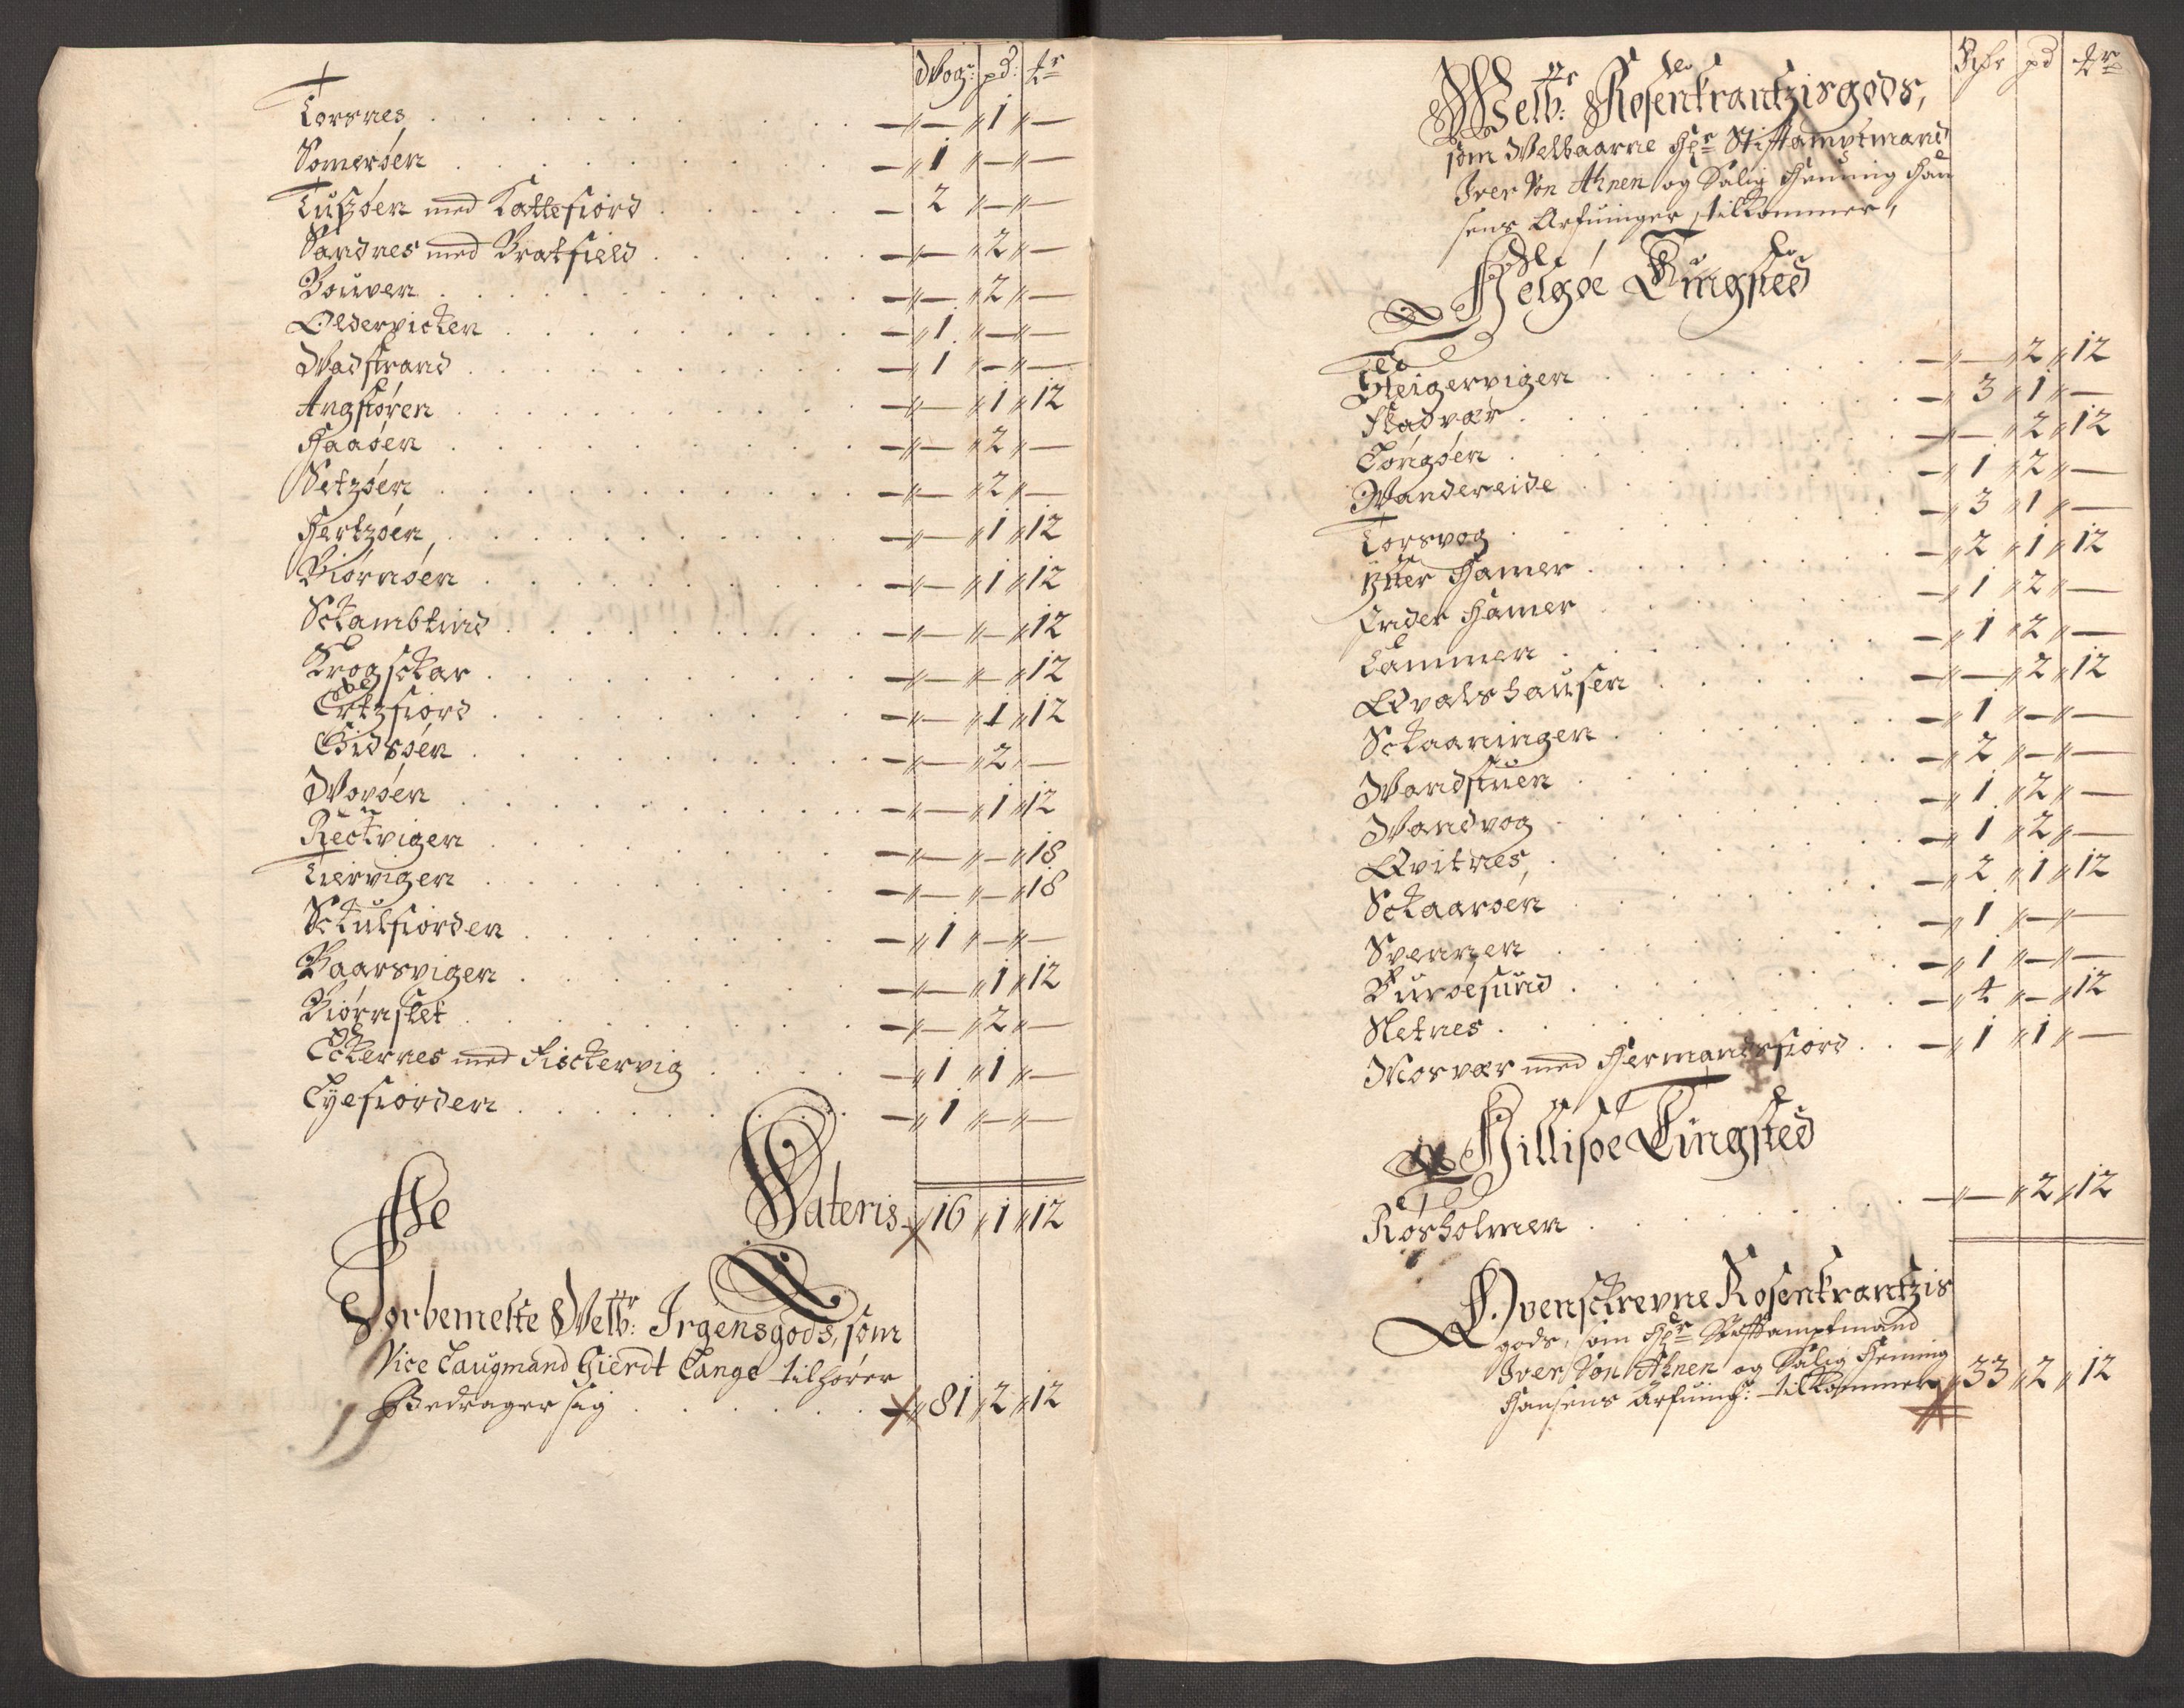 Wog: pd: ℔r
Torsnes — " — " 1 " —
Somersöen — " 1 " — " —
Tussöen med Kattefiord — 2 " — " —
Sandnes med Bratfield — " — " 2 " —
Bouven — " — " 2 " —
Oldervicken — " 1 " — " —
Wadstrand — " 1 " — " —
Angstören — " — " 1 " 12
Haaöen — " — " 2 " —
Setzöen — " — " 2 " —
Hertzöen, — " — " 1 " 12
Biörnöen — " — " 1 " 12
Sckambtind — " — " — " 12
Krogsckar — " — " — " 12
Ertzfiord — " — " 1 " 12
Gidsöen — " — " 2 " —
Woröen — " — " 1 " 12
Reckvigen — " — " — " 18
Tiervigen — " — " — " 18
Sckulfiorden — " 1 " — " —
Baarsvigen — " — " 1 " 12
Biörnstet — " — " 2 " —
Eckernes med Fisckervig — " 1 " 1 " —
Lyefiorden — " 1 " — " —
Lateris 16 " 1 " 12
Forbemelte Welb: Irgensgods, som
Vice Laugmand Gierdt Lange tilhører
Bedrager sig — " 81 " 2 " 12
Wog pd ℔r
Welb: Rosenkrantzis gods,
som Welbaarne Hr Stiftamptmand
Iver Von Ahnen og Salig Henning Han
sens Arfuinger, tilkommer,
Helgöe Tingsted
Steigervigen — " — " 2 " 12
Fladvær — " 3 " 1 " —
Tongöen — " — " 2 " 12
Wandereide — " 1 " 2 " —
Torsvog — " 3 " 1 " —
Ytter Hamer — " 2 " 1 " 12
Inder Hamer — " 1 " 2 " —
Lammen — " 1 " 2 " —
Qvalshausen — " — " 2 " 12
Sckaaningen — " 1 " — " —
Wandstuen — " 2 " — " —
Wandvog — " 1 " 2 " —
Qvitnes, — " 1 " 2 " —
Sckaaröen — " 2 " 1 " 12
Svennen — " 1 " — " —
Buröesund — " 1 " — " —
Sletnes — " 4 " — " 12
Morvær med Hermandsfiord — " 1 " 1 " —
Hillisöe Tingsted
Rösholmen — " — " 2 " 12
Ovensckrevne Rosenkrantzis
gods, som Hr Stiftamptmand
Iver Von Ahnen og Salig Henning
Hansens Arfuing: tilkommer " 33 " 2 " 12